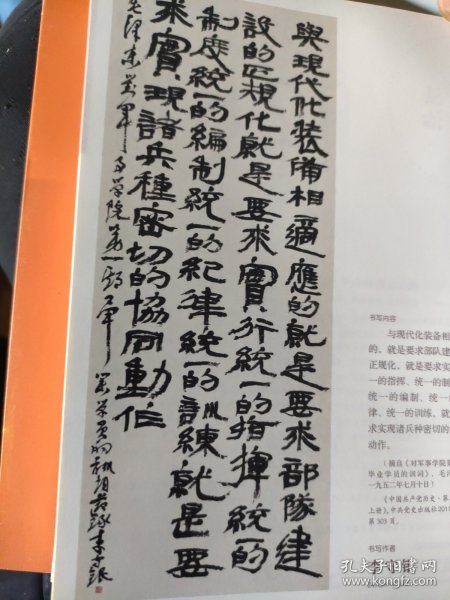 與現代化裝備相適應的就是要求部隊建
設的正規化就是要求實行統一的指揮統一的
制度統一的編制統一的紀律統一的訓練就是要
求實現諸兵種密切的協同動作
毛澤東
軍事學院第一期
书写内容
与现代化装备相
的，就是要求部队建
正规化，就是要求实
一的指挥、统一的制
统一的编制、统一的
律、统一的训练，就
求实现诸兵种密切的
动作。
（摘自《对军事学院第
毕业学员的训词》，毛泽
一九五二年七月十日）
《中国共产党历史·第
上册》，中共党史出版社201
第303页。
书写作者
孔夫子旧书网